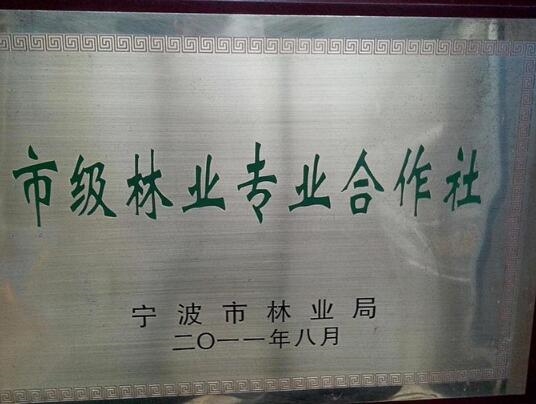 市级林业专业合作社
宁波市林业局
二〇一一年八月